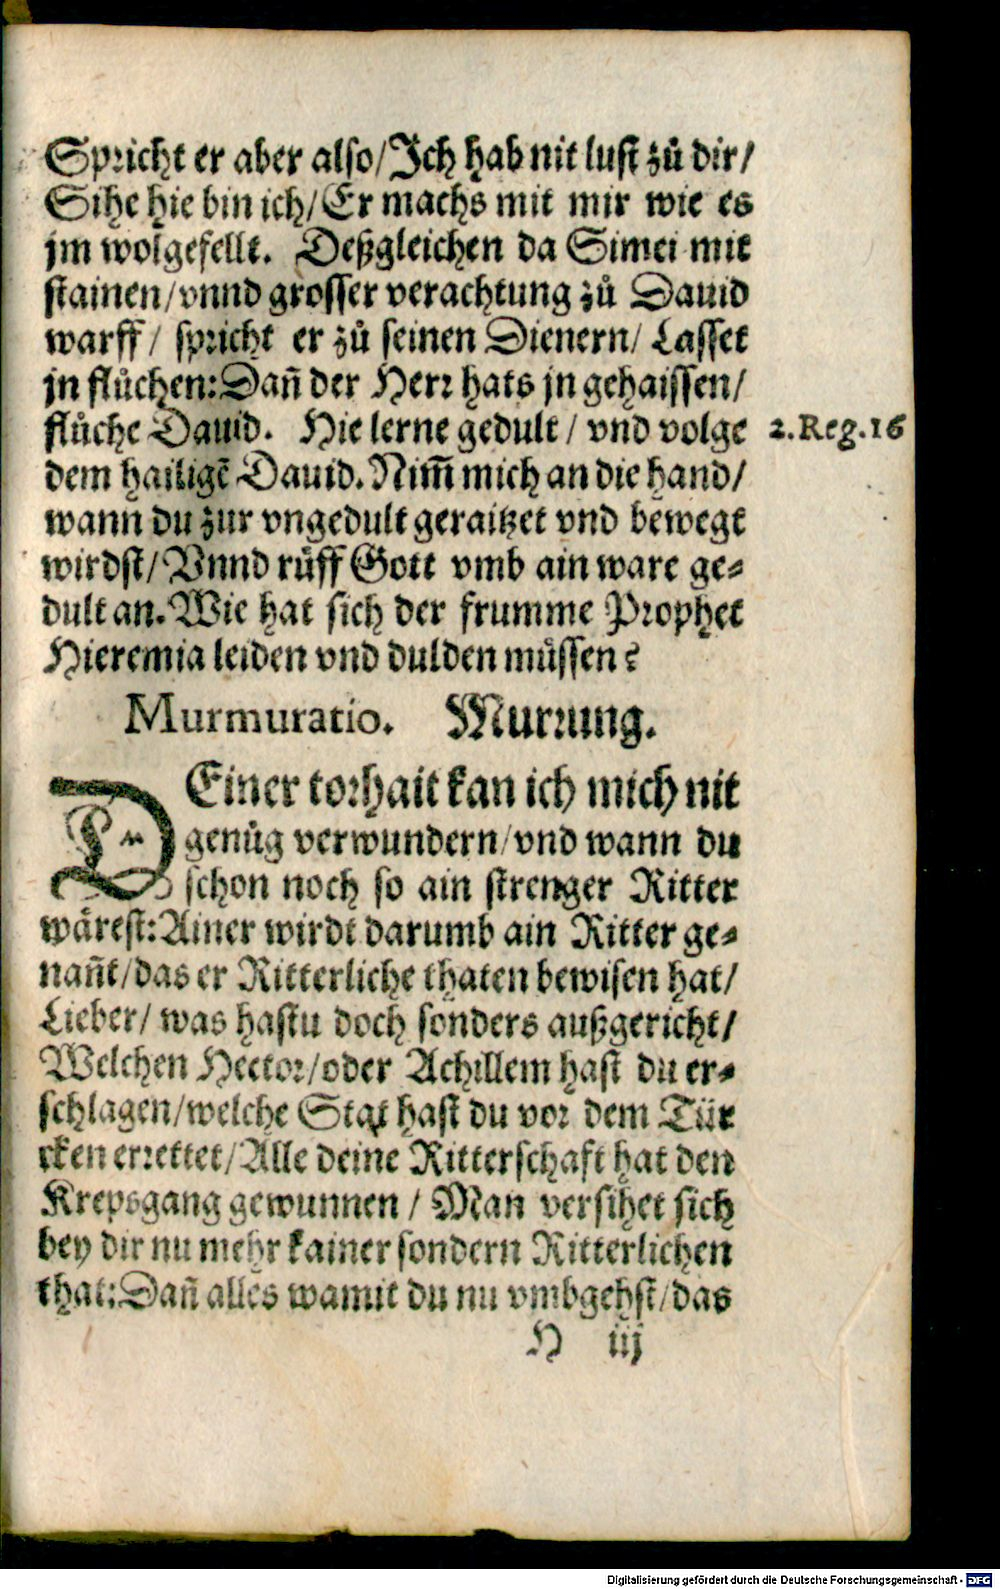 Spricht er aber also/Ich hab nit lust zů dir/
Sihe hie bin ich/Er machs mit mir wie es
jm wolgefellt. Deßgleichen da Simei mit
stainen/vnnd grosser verachtung zů Dauid
warff/ spricht er zů seinen Dienern/ Lasset
jn flůchen: Dañ der Herr hats jn gehaissen/
flůche Dauid. Hie lerne gedult / vnd volge
2.Reg.16
dem hailigẽ Dauid. Nim̃ mich an die hand/
wann du zur vngedult geraitzet vnd bewegt
wirdst/Vnnd růff Gott vmb ain ware ge-
dult an. Wie hat sich der frumme Prophet
Hieremia leiden vnd dulden müssen?
Murmuratio. Murrung.
DEiner torhait kan ich mich nit
genůg verwundern/vnd wann du
schon noch so ain strenger Ritter
wärest: Ainer wirdt darumb ain Ritter ge-
nañt/das er Ritterliche thaten bewisen hat/
Lieber/ was hastu doch sonders außgericht/
Welchen Hector/oder Achillem hast du er-
schlagen/welche Stat hast du vor dem Tür
cken errettet/Alle deine Ritterschaft hat den
Krepsgang gewunnen / Man versihet sich
bey dir nu mehr kainer sondern Ritterlichen
that: Dañ alles wamit du nu vmbgehst/das
H iij
Digitalisierung gefördert durch die Deutsche Forschungsgemeinschaft - DFG